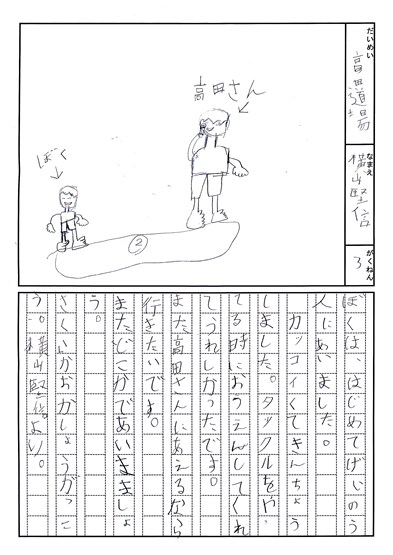 だいめい
高田道場
なまえ
横山堅信
がくねん
3
高田さん
ぼく
②
ぼくは、はじめてげいのう
人にあいました。
カッコイくてきんちょう
しました。タックルをや
てる時におうえんしてくれ
てうれしかったです。
また高田さんにあえるなら
行きたいです。
またどこかであいましょ
う。
さくいがおかしょうがっこ
う。横山堅信より。